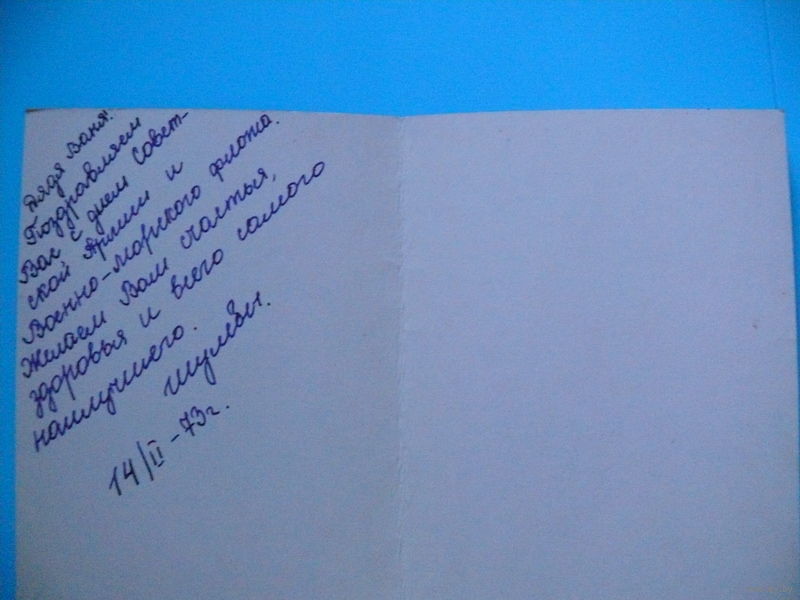 Дядя Ваня!
Поздравляем
Вас с днем Совет-
ской Армии и
Военно-морского флота.
Желаем Вам счастья,
здоровья и всего самого
наилучшего.
14/II-73г.